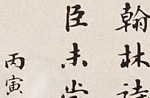 翰林詩
臣未嘗
丙寅